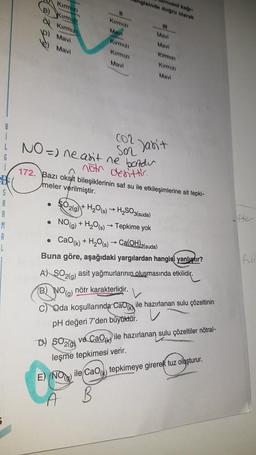 doğru olarak
II
III
B) Kırmızı
Kırmızı
Mavi
Kırmızı
Mavi
Mavi
Kırmızı
D) Mavi
Kırmızı
Kırmızı
Mavi
Kırmızı
Kırmızı
Mavi
Mavi
CO2
SO2 } asit
NO => ne asit ne bazdır
nötr
172. Bazı oksit bileşiklerinin saf su ile etkileşimlerine ait tepkimeler verilmiştir.
• SO2(g) + H2O(s) → H2SO3(suda)
• NO(g) + H2O(s) → Tepkime yok
• CaO(k) + H2O(s) → Ca(OH)2(suda)
Buna göre, aşağıdaki yargılardan hangisi yanlıştır?
A) SO2(g) asit yağmurlarının oluşmasında etkilidir.
B) NO(g) nötr karakterlidir.
C) Oda koşullarında CaO(k) ile hazırlanan sulu çözeltinin
pH değeri 7'den büyüktür.
D) SO2(g) ve CaO(k) ile hazırlanan sulu çözeltiler nötral-
leşme tepkimesi verir.
E) NO(g) ile CaO(k) tepkimeye girerek tuz oluşturur.
A B